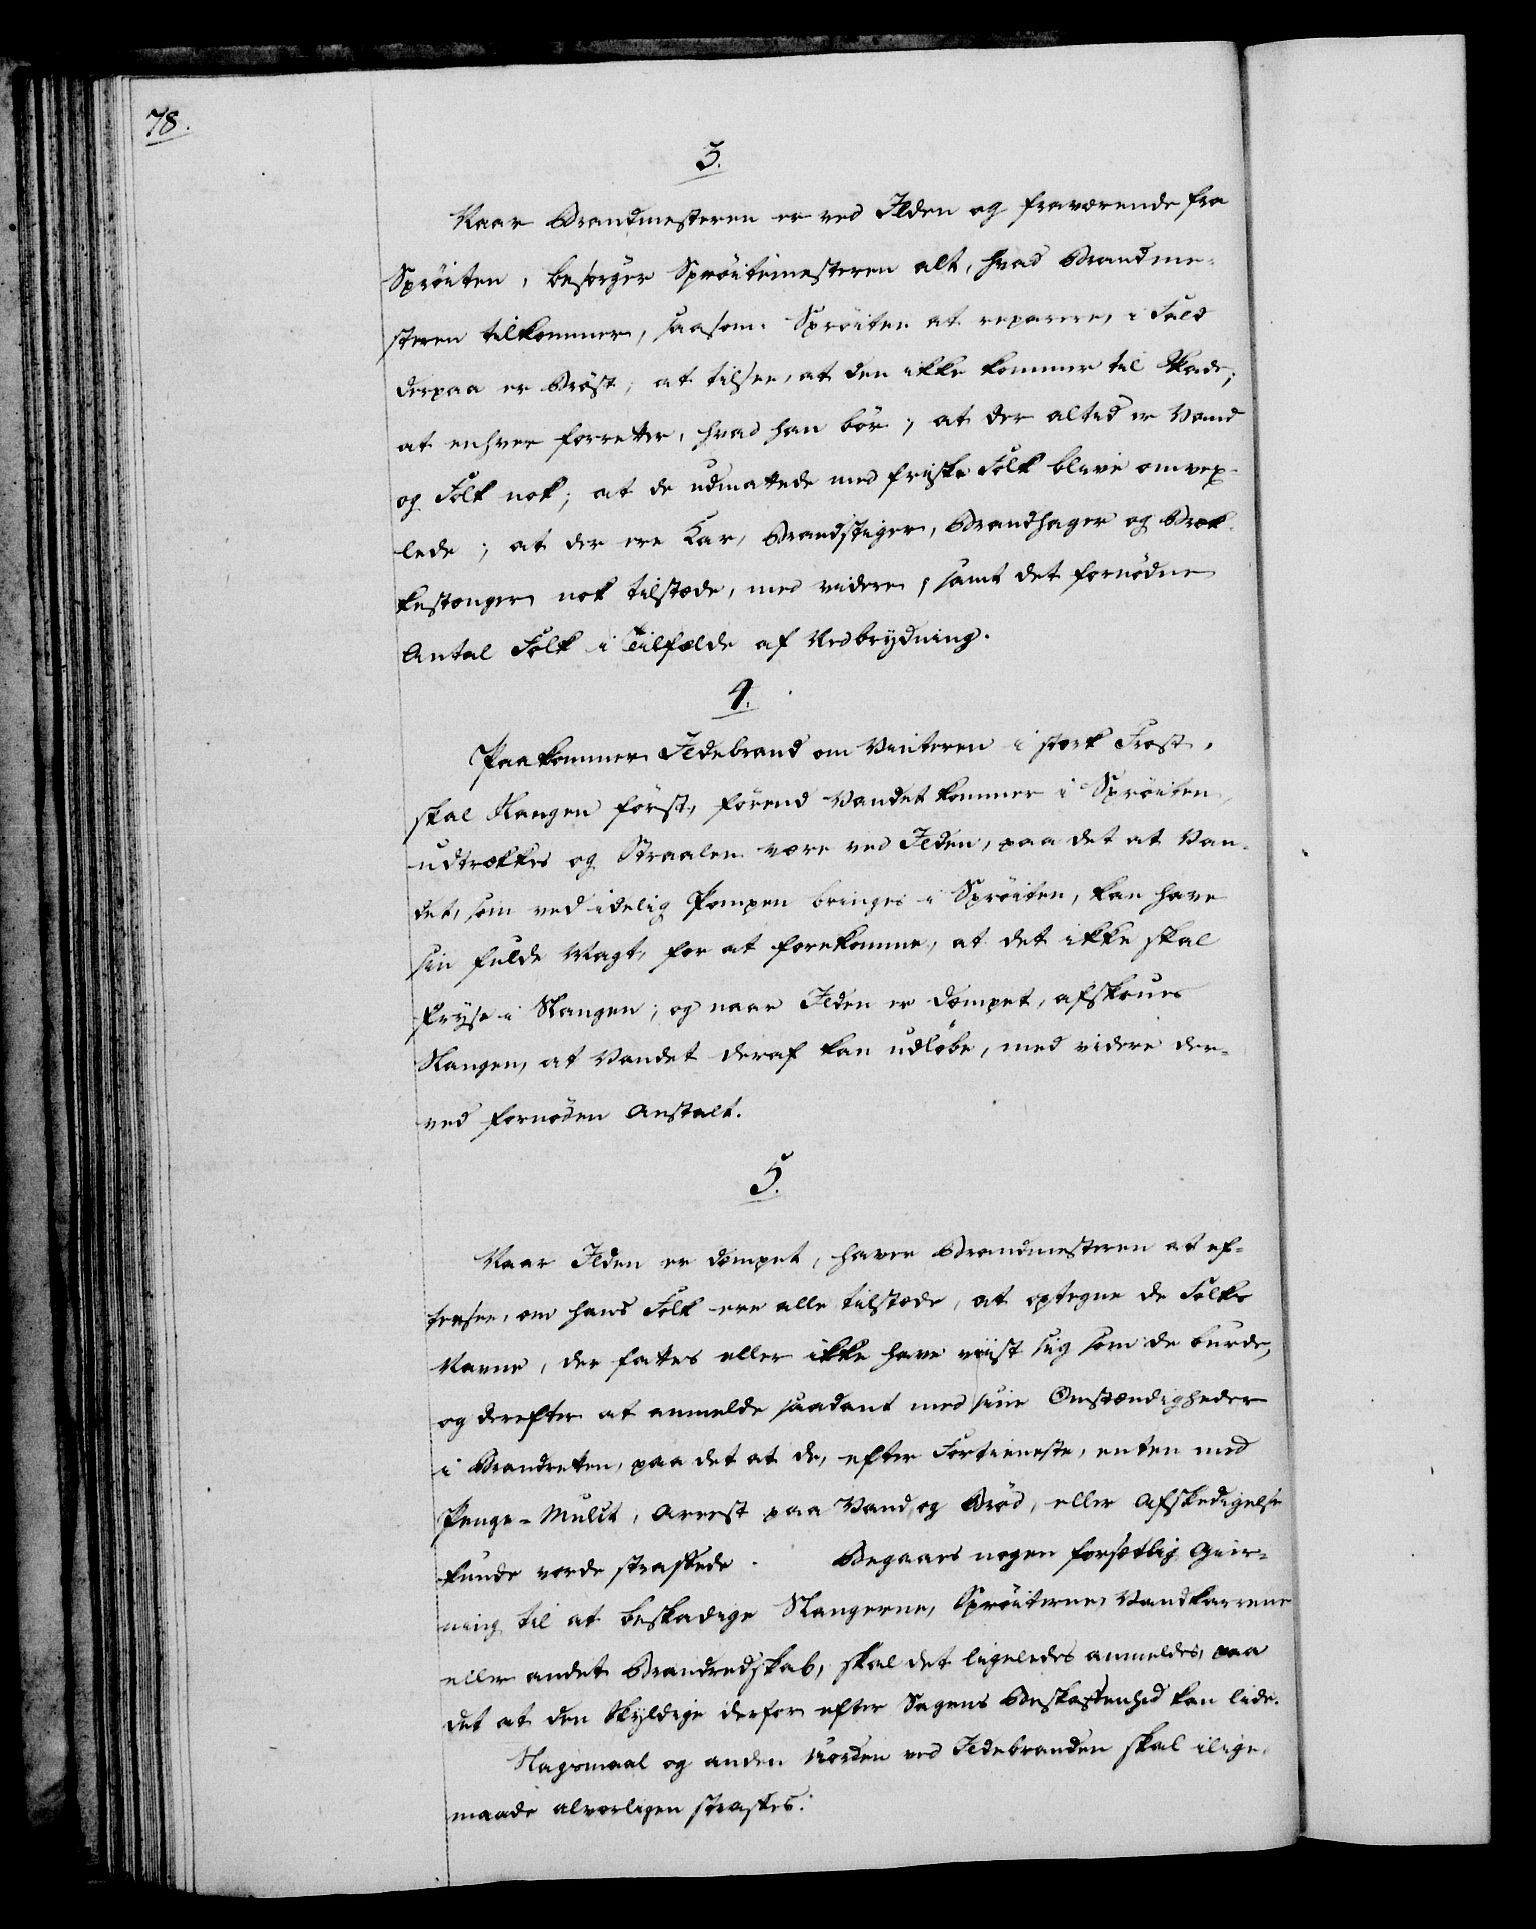 78.
3.
Naar Brandmesteren er ved Ilden og fraværende fra
Sprøiten, besørger Sprøitemesteren alt, hvad Brandme-
steren tilkommer, saasom: Sprøiten at reparere, i Fald
derpaa er Brøst; at tilsee, at den ikke kommer til Skade;
at enhver forretter, hvad han bør; at der altid er Vand
og Folk nok; at de udmattede med friske Folk blive omvex-
lede; at der ere Kar, Brandstiger, Brandhager og Bræk-
kestænger nok tilstæde, med videre, samt det fornødne
Antal Folk i Tilfælde af Nedbrydning.
4.
Paakommer Ildebrand om Vinteren i stærk Frost,
skal Slangen først, førend Vandet kommer i Sprøiten,
udtrækkes og Straalen være ved Ilden, paa det at Van-
det, som ved idelig Pompen bringes i Sprøiten, kan have
sin fulde Magt, for at forekomme, at det ikke skal
fryse i Slangen; og naar Ilden er dæmpet, afskrues
Slangen, at Vandet deraf kan udløbe, med videre der-
ved fornøden Anstalt.
5.
Naar Ilden er dæmpet, haver Brandmesteren at ef-
tersee, om hans Folk ere alle tilstæde, at optegne de Folks
Navne, der fattes eller ikke have viist sig som de burde,
og derefter at anmelde saadant med sine Omstændigheder
i Brandretten, paa det at de, efter Fortieneste, enten med
Penge-Mulct, Arrest paa Vand og Brød, eller Afskedigelse
kunde vorde straffede. Begaaes nogen forsætlig Gier-
ning til at beskadige Slangerne, Sprøiterne, Vandkarrene
eller andet Brandredskab, skal det ligeledes anmeldes, paa
det at den Skyldige derfor efter Sagens Beskaffenhed kan lide.
Slagsmaal og anden Uorden ved Ildebranden skal ilige-
maade alvorligen straffes.